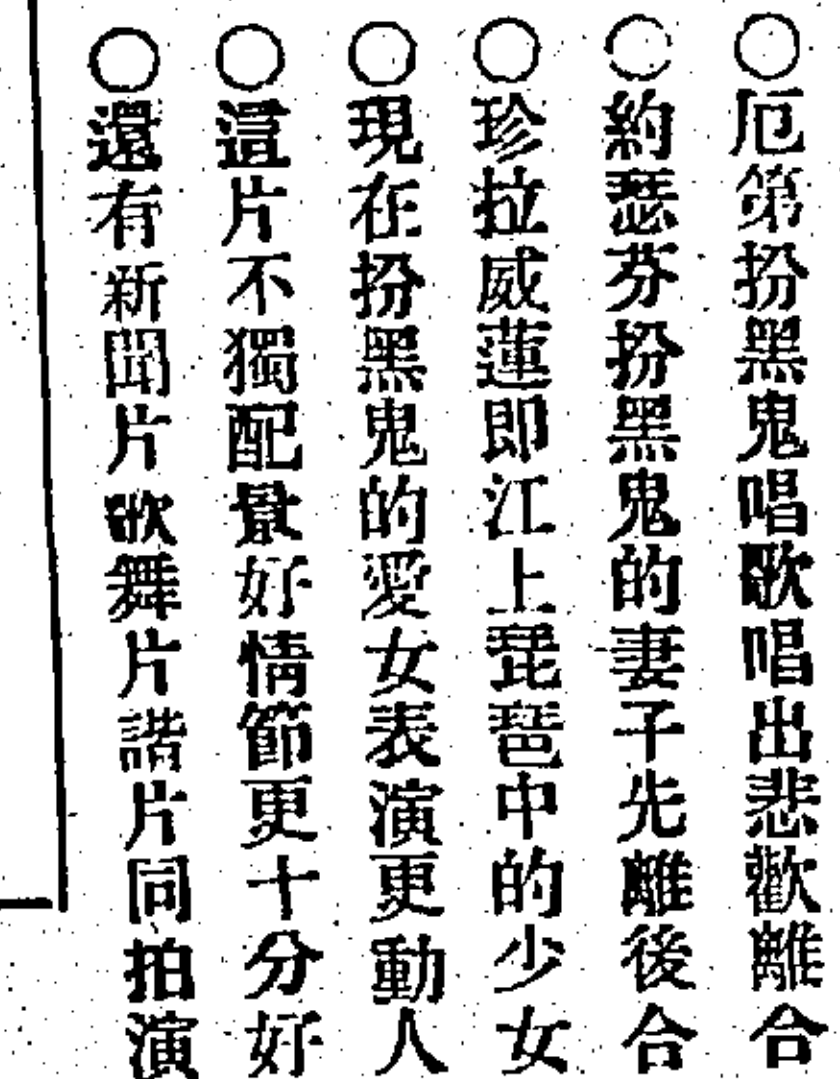 〇厄第扮黑鬼唱歌唱出悲歡離合
〇約瑟芬扮黑鬼的妻子先離後合
〇珍拉威蓮即江上琵琶中的少女
〇現在扮黑鬼的愛女表演更動人
〇這片不獨配景好情節更十分好
〇還有新聞片歌舞片諧片同拍演